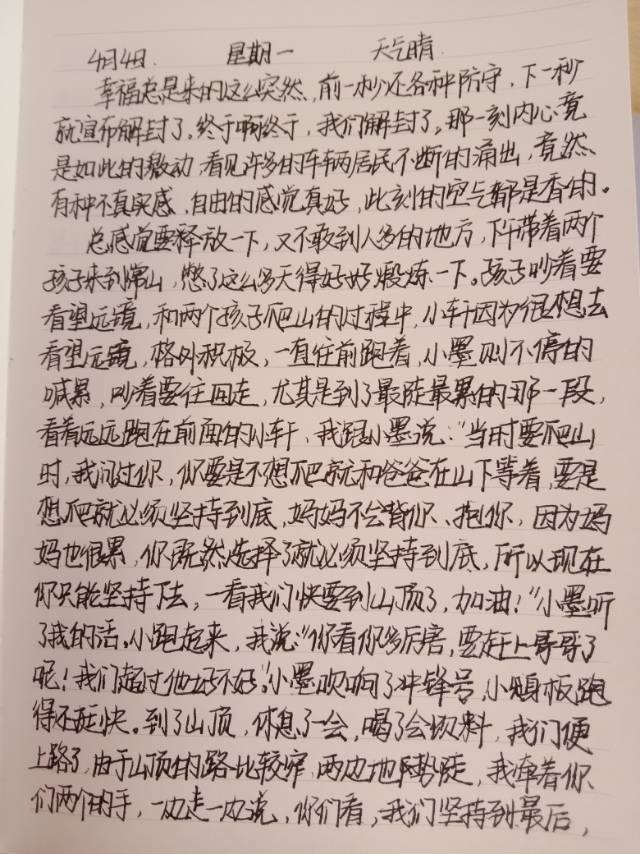 4月4日 星期一 天气晴
幸福总是来的这么突然,前一秒还各种防守,下一秒
就宣布解封了。终于啊终于,我们解封了。那一刻内心竟
是如此的激动,看见许多的车辆居民不断的涌出,竟然
有种不真实感,自由的感觉真好,此刻的空气都是香的。
总感觉要释放一下,又不敢到人多的地方,下午带着两个
孩子来到常山,憋了这么多天得好好锻炼一下。孩子吵着要
看望远镜,和两个孩子爬山的过程中,小轩因为很想去
看望远镜,格外积极,一直往前跑着,小墨则不停的
喊累,吵着要往回走,尤其是到了最陡最累的那一段,
看着远远跑在前面的小轩,我跟小墨说:“当时要爬山
时,我问过你,你要是不想爬就和爸爸在山下等着,要是
想爬就必须坚持到底,妈妈不会背你、抱你,因为妈
妈也很累,你既然选择了就必须坚持到底,所以现在
你只能坚持下去,一看我们快要到山顶了,加油!”小墨听
了我的话。小跑起来,我说:“你看你多厉害,要赶上哥哥了
呢!我们超过他好不好。”小墨吹响了冲锋号,小身板跑
得还挺快。到了山顶,休息了一会,喝了会饮料,我们便
上路了,由于山顶的路比较窄,两边地势陡,我牵着你
们两个的手,一边走一边说,你们看,我们坚持到最后,